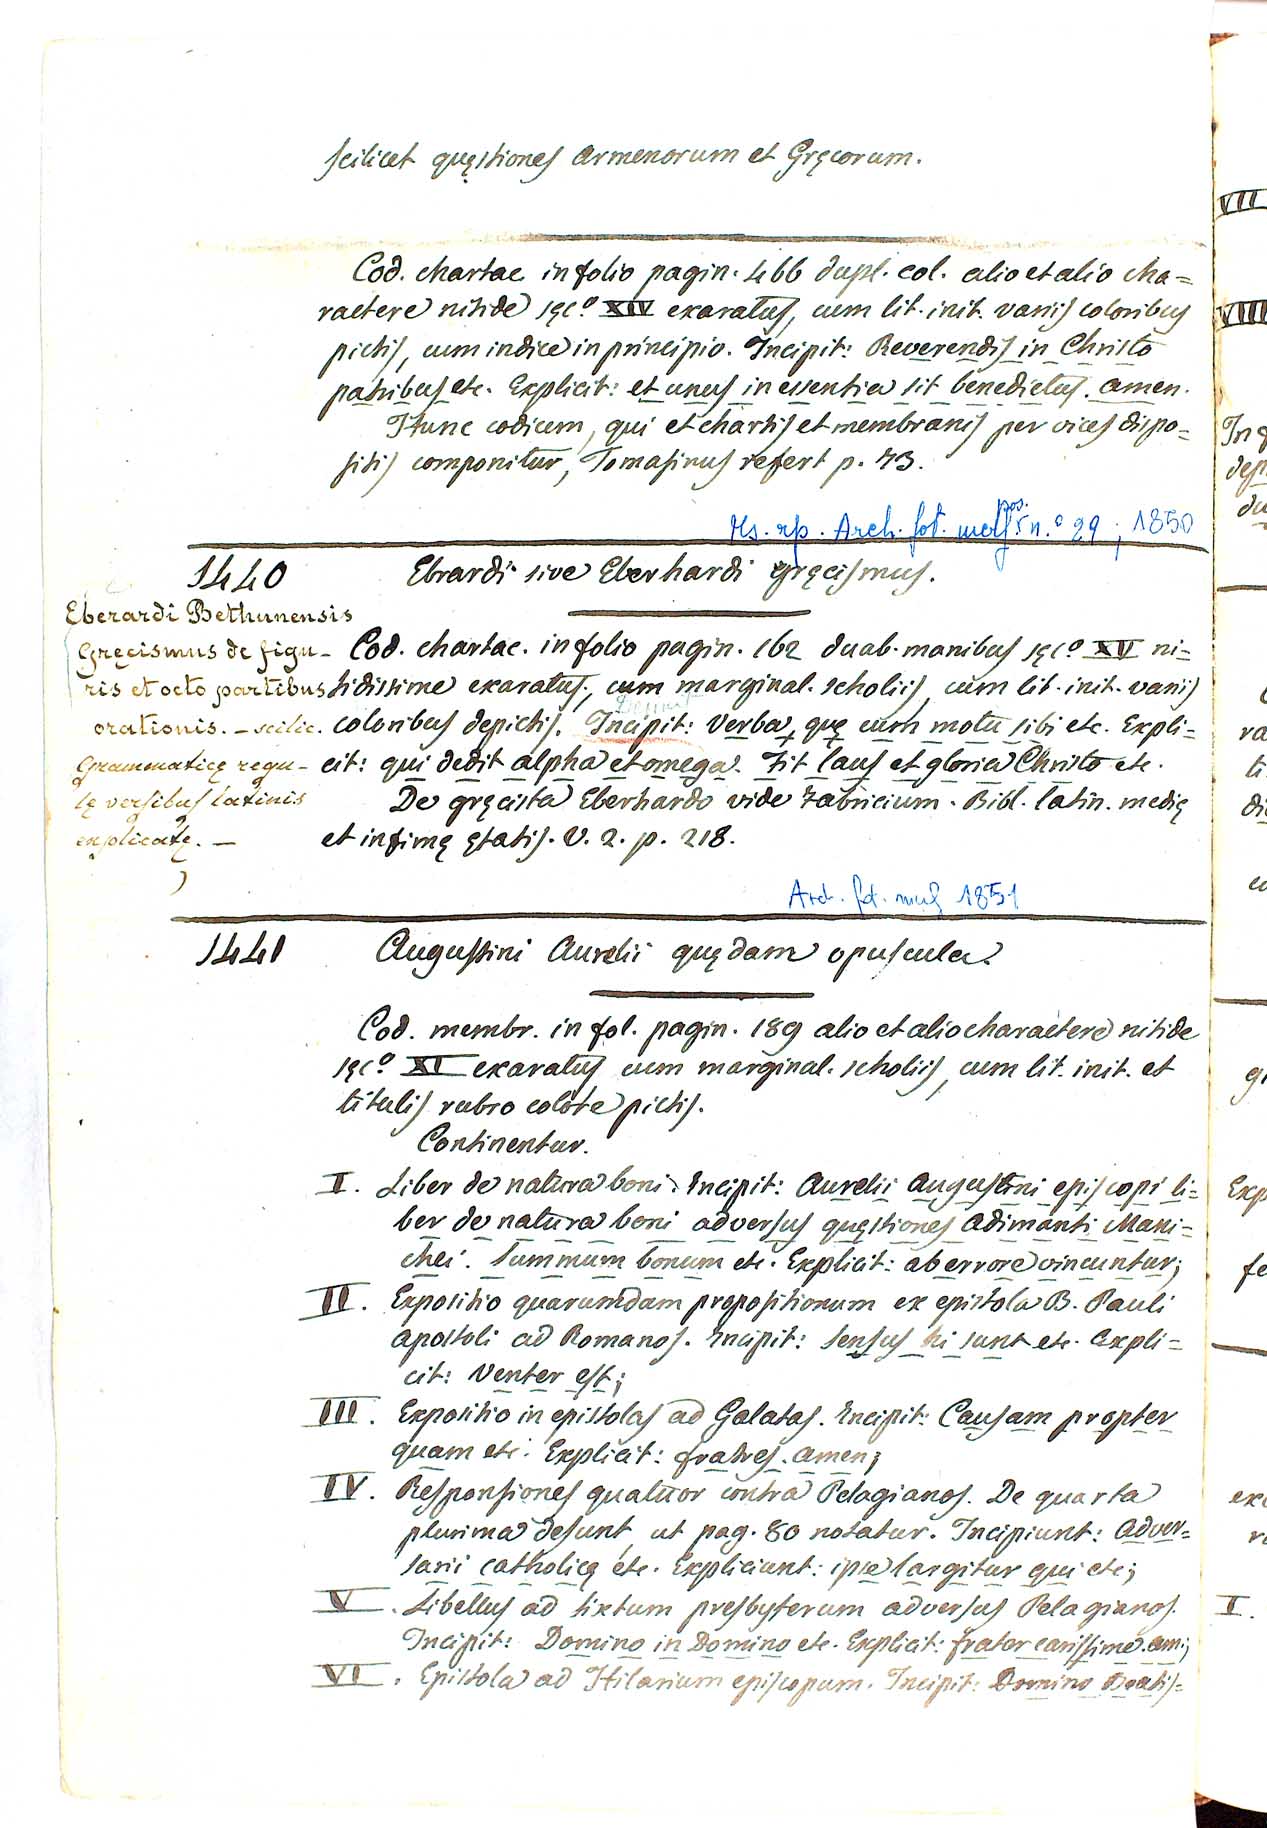 scilicet quęstiones Armenorum et Gręcorum.
Cod. chartac. in folio pagin. 466 dupl. col. alio et alio cha=
ractere nitide sęc.º XIV exaratus, cum lit. init. variis coloribus
pictis, cum indice in principio. Incipit: Reverendis in Christo
patribus etc. Explicit: et unus in essentia sit benedictus. amen.
Hunc codicem, qui et chartis et membranis per vices dispo=
sitis componitur, Tomasinus refert p. 73.
pos.
Ms. rp. Arch. fot. n.º 29; 1850
1440 Ebrardi sive Eberhardi gręcismus.
Eberardi Bethunensis
Gręcismus de figu-
ris et octo partibus
orationis. - scilic.
Grammaticę regu-
lę versibus latinis
explicatę. -
Cod. chartac. in folio pagin. 162 duab. manibus sęc.º XV ni=
tidissime exaratus, cum marginal. scholiis, cum lit. init. variis
coloribus depictis. Incipit: Verba, quę cum motu sibi etc. Expli=
cit: qui dedit alpha et omega. Fit laus et gloria Christo etc.
De gręcista Eberhardo vide Fabricium. Bibl. latin. medię
et infimę ętatis. V. 2. p. 218.
Arch. fot. 1851
1441 Augustini Aurelii quędam opuscula.
Cod. membr. in fol. pagin. 189 alio et alio charactere nitide
sęc.º XI exaratus cum marginal. scholiis, cum lit. init. et
titulis rubro colore pictis.
Continentur.
I. Liber de natura boni. Incipit: Aurelii Augustini episcopi li=
ber de natura boni adversus quęstiones Adimanti Mani=
chei. Summum bonum etc. Explicit: ab errore vincuntur;
II. Expositio quarumdam propositionum ex epistola B. Pauli
Apostoli ad Romanos. Incipit: Sensus hi sunt etc. Expli=
cit: Venter est;
III. Expositio in epistolas ad Galatas. Incipit: Causam propter
quam etc. Explicit: fratres. amen;
IV. Responsiones quatuor contra Pelagianos. De quarta
plurima desunt ut pag. 80 notatur. Incipiunt: Adver=
sarii catholicę etc. Expliciunt: ipse largitur qui etc;
V. Libellus ad Sixtum presbyterum adversus Pelagianos.
Incipit: Domino in Domino etc. Explicit: frater carissime. am;
VI. Epistola ad Hilarium episcopum. Incipit: Domino Beatis=